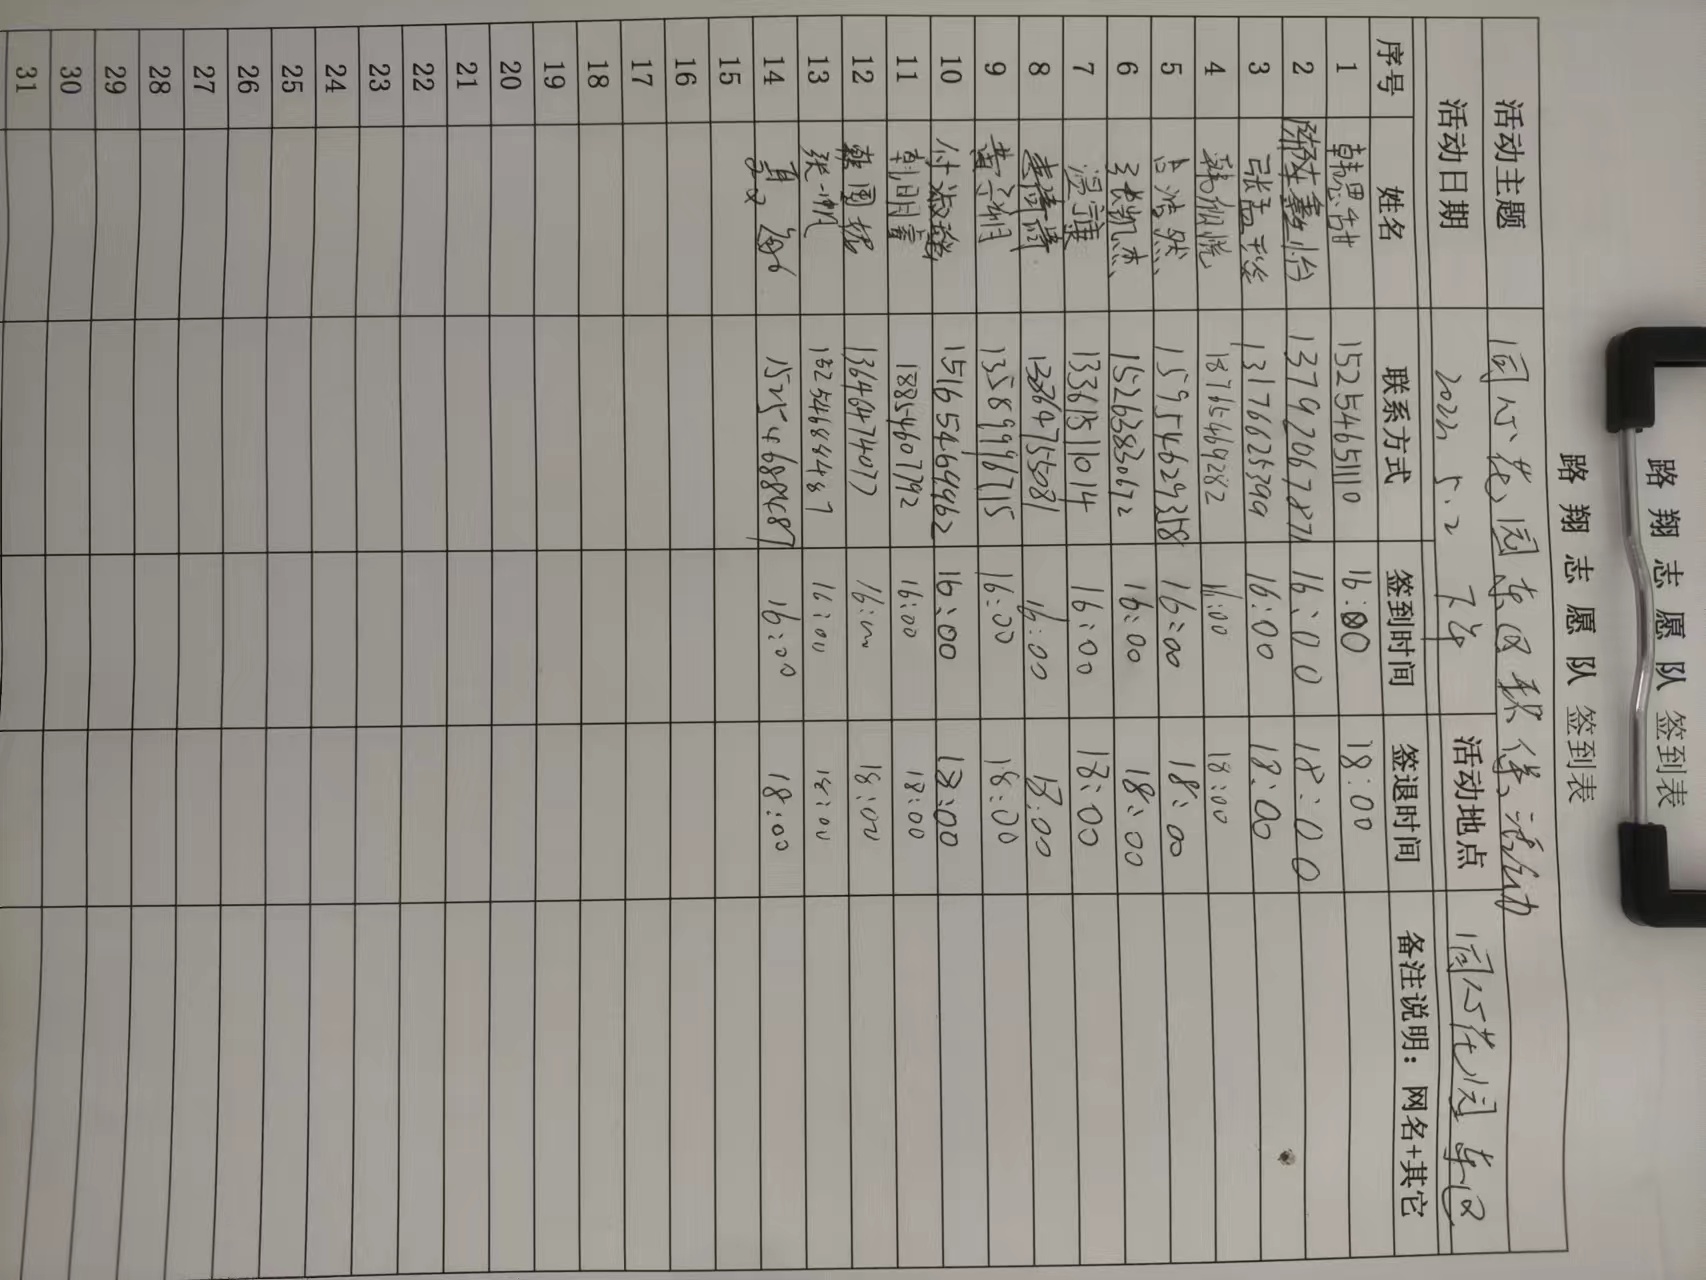 路翔志愿队签到表
路翔志愿队签到表
活动主题 同心花园东区 活动
活动日期 2022 5.2 下午 活动地点 同心花园东区
序号 姓名 联系方式 签到时间 签退时间 备注说明：网名+其它
1 韩思甜 15254651110 16:00 18:00
2 13792067871 16:00 18:00
3 张孟 13176625399 16:00 18:00
4 韩仙悦 18765469282 16:00 18:00
5 吕浩然 15954629358 16:00 18:00
6 张凯杰 15263830672 16:00 18:00
7 温宁康 13361511014 16:00 18:00
8 16:00 18:00
9 黄 13589996715 16:00 18:00
10 付淑 15165469962 16:00 18:00
11 韩明睿 18854607792 16:00 18:00
12 韩国振 13646474077 16:00 18:00
13 张一帆 15254688487 16:00 18:00
14 15254688487 16:00 18:00
15
16
17
18
19
20
21
22
23
24
25
26
27
28
29
30
31